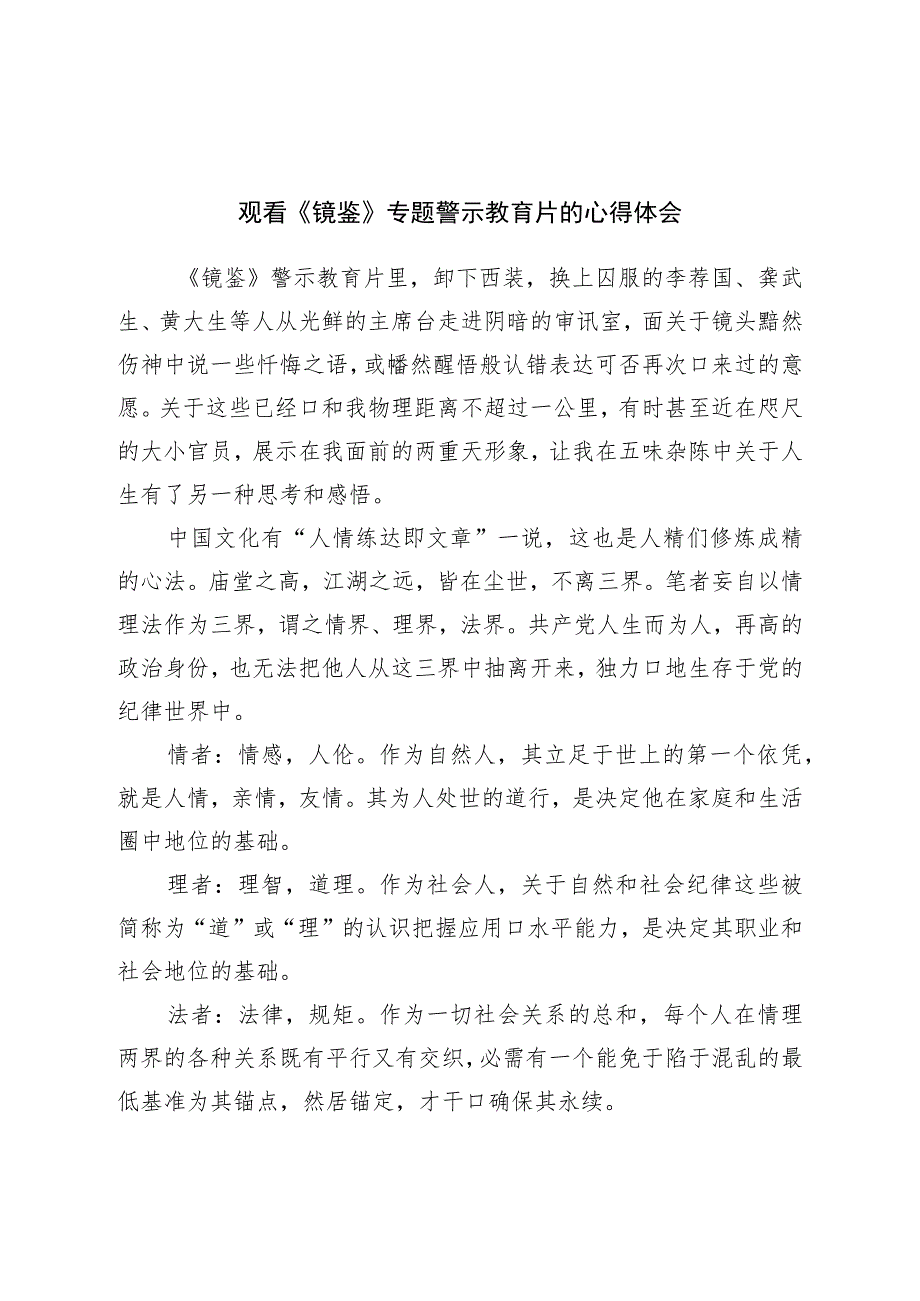 观看《镜鉴》专题警示教育片的心得体会
《镜鉴》警示教育片里，卸下西装，换上囚服的李荐国、龚武
生、黄大生等人从光鲜的主席台走进阴暗的审讯室，面关于镜头黯然
伤神中说一些忏悔之语，或幡然醒悟般认错表达可否再次口来过的意
愿。关于这些已经口和我物理距离不超过一公里，有时甚至近在咫尺
的大小官员，展示在我面前的两重天形象，让我在五味杂陈中关于人
生有了另一种思考和感悟。
中国文化有“人情练达即文章”一说，这也是人精们修炼成精
的心法。庙堂之高，江湖之远，皆在尘世，不离三界。笔者妄自以情
理法作为三界，谓之情界、理界，法界。共产党人生而为人，再高的
政治身份，也无法把他人从这三界中抽离开来，独力口地生存于党的
纪律世界中。
情者：情感，人伦。作为自然人，其立足于世上的第一个依凭，
就是人情，亲情，友情。其为人处世的道行，是决定他在家庭和生活
圈中地位的基础。
理者：理智，道理。作为社会人，关于自然和社会纪律这些被
简称为“道”或“理”的认识把握应用口水平能力，是决定其职业和
社会地位的基础。
法者：法律，规矩。作为一切社会关系的总和，每个人在情理
两界的各种关系既有平行又有交织，必需有一个能免于陷于混乱的最
低基准为其锚点，然居锚定，才干口确保其永续。